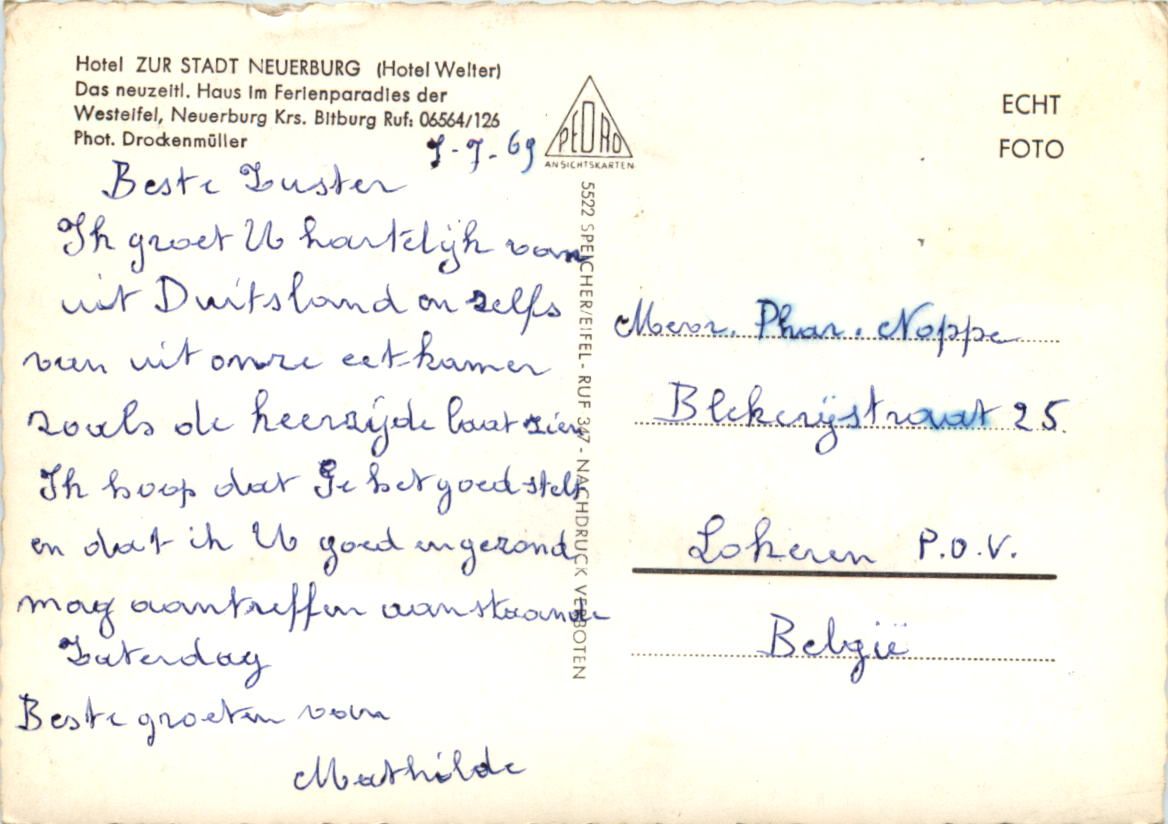 Hotel ZUR STADT NEUERBURG (Hotel Welter)
Das neuzeitl. Haus im Ferienparadies der
Westeifel, Neuerburg Krs. Bitburg Ruf: 06564/126
Phot. Drockenmüller
7-7-69
Beste Zuster
Ik groet U hartelijk van
uit Duitsland en zelfs
van uit onze eetkamer
zoals de keerzijde laat zien
Ik hoop dat Ge het goed stelt
en dat ik U goed en gezond
mag aantreffen aanstaande
Zaterdag
Beste groeten van
Mathilde
PEDRO
ANSICHTSKARTEN
5522 SPEICHER/EIFEL - RUF 347 - NACHDRUCK VERBOTEN
ECHT
FOTO
Mevr. Phar. Noppe
Blekerijstraat 25.
Lokeren P.O.V.
België